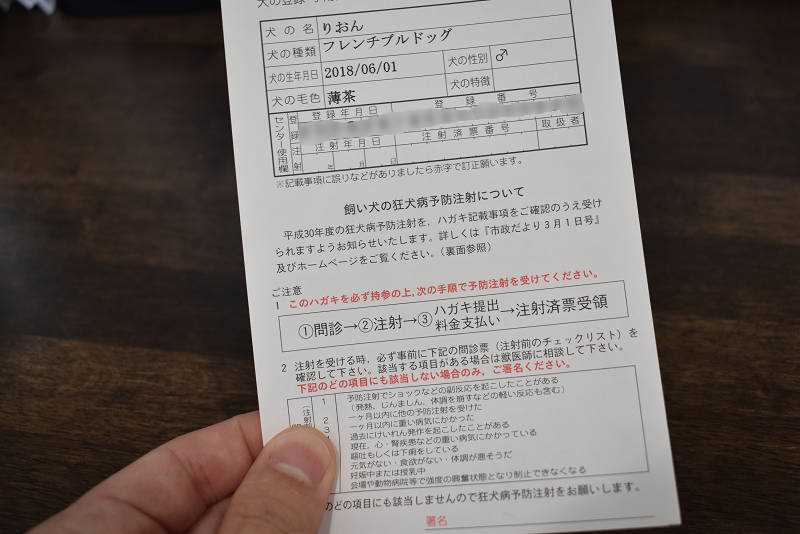 犬の登録
犬の名 りおん
犬の種類 フレンチブルドッグ
犬の生年月日 2018/06/01 犬の性別 ♂
犬の毛色 薄茶 犬の特徴
センター使用欄 登録 登録年月日 登録番号
注射 注射年月日 注射済票番号 取扱者
年 月 日
※記載事項に誤りなどがありましたら赤字で訂正願います。
飼い犬の狂犬病予防注射について
平成30年度の狂犬病予防注射を、ハガキ記載事項をご確認のうえ受け
られますようお知らせいたします。詳しくは『市政だより3月1日号』
及びホームページをご覧ください。(裏面参照)
ご注意
1 このハガキを必ず持参の上,次の手順で予防注射を受けてください。
①問診→②注射→③ハガキ提出 料金支払い→注射済票受領
2 注射を受ける時、必ず事前に下記の問診票(注射前のチェックリスト)を
確認して下さい。該当する項目がある場合は獣医師に相談して下さい。
下記のどの項目にも該当しない場合のみ、ご署名ください。
1 予防注射でショックなどの副反応を起こしたことがある
(発熱、じんましん、体調を崩すなどの軽い反応も含む)
2 一ヶ月以内に他の予防注射を受けた
3 一ヶ月以内に重い病気にかかった
過去にけいれん発作を起こしたことがある
現在、心・腎疾患などの重い病気にかかっている
嘔吐もしくは下痢をしている
元気がない・食欲がない・体調が悪そうだ
妊娠中または授乳中
会場や動物病院等で強度の興奮状態となり制止できなくなる
のどの項目にも該当しませんので狂犬病予防注射をお願いします。
署名